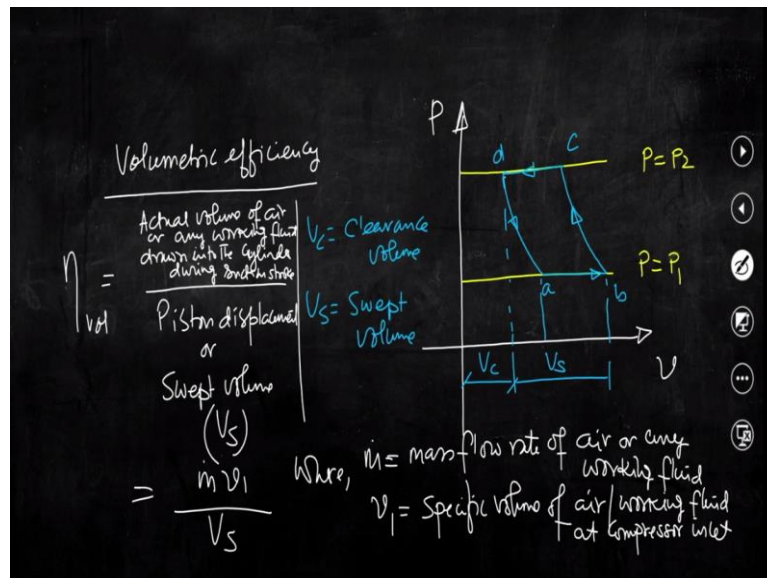 Volumetric efficiency
η vol =
Actual volume of air
or any working fluid
drawn into the cylinder
during suction stroke
Piston displacement
or
Swept volume
(Vs)
= ṁ v1
Vs
Vc = Clearance
volume
Vs = Swept
volume
P
d
c
P = P2
a
b
P = P1
Vc
Vs
v
Where, ṁ = mass flow rate of air or any
working fluid
v1 = Specific volume of air/working fluid
at compressor inlet